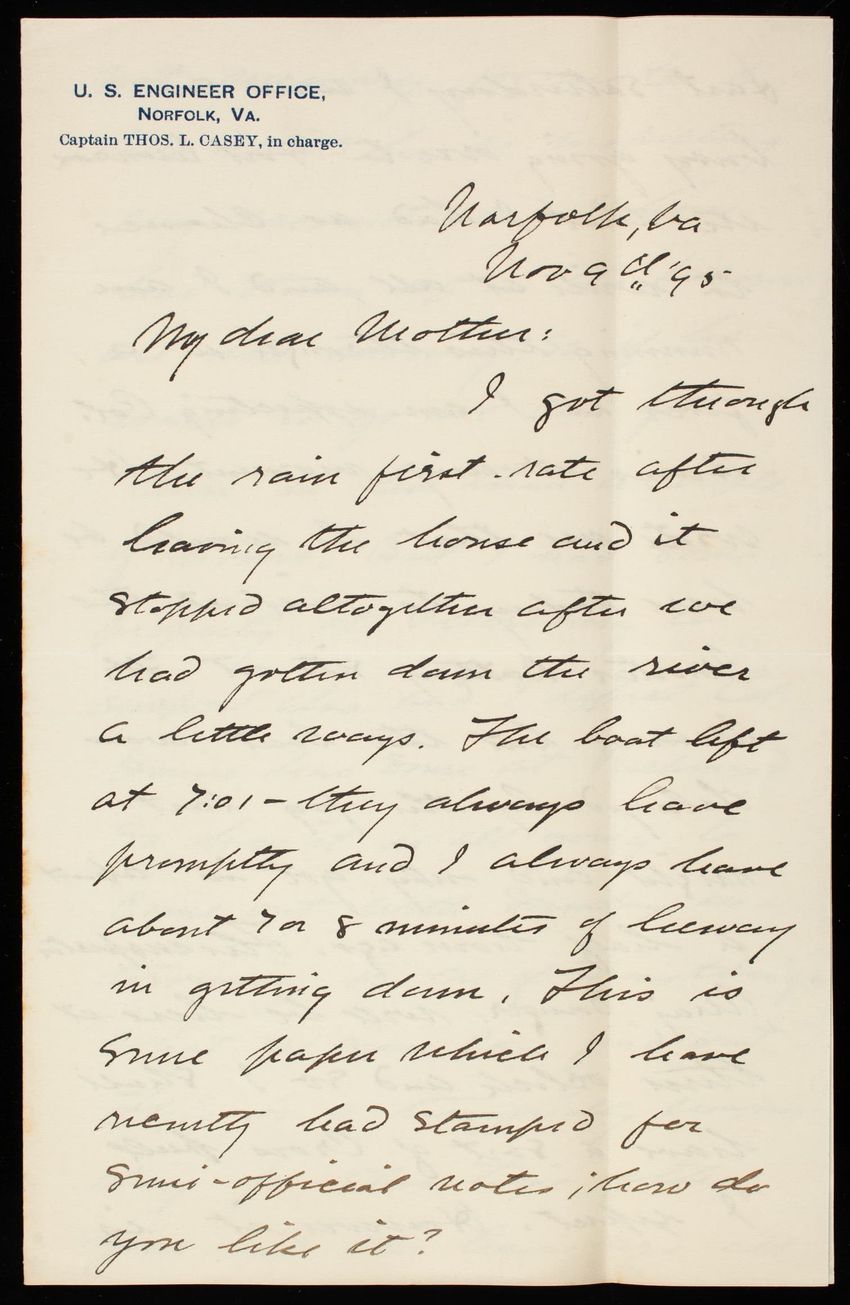 U. S. ENGINEER OFFICE,
NORFOLK, VA.
Captain THOS. L. CASEY, in charge.
Norfolk, Va
Nov 9th '95
My dear Mother:
I got through
the rain first-rate after
leaving the house and it
stopped altogether after we
had gotten down the river
a little ways. The boat left
at 7:01 - they always leave
promptly and I always have
about 7 or 8 minutes of leeway
in getting down. This is
some paper which I have
recently had stamped for
semi-official notes; how do
you like it?